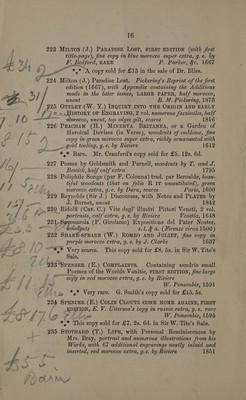 16
223 MILTON (J.) PARADISE LOST, FIRST EDITION (with first
title-page), fine copy in blue morocco super extra, g.e. by
F. Bedford, RARE P. Parker, &c. 1667
*** A copy sold for £13 in the sale of Dr. Bliss.
224 Milton (J.) Paradise Lost. Pickering's Reprint of the first
edition (1667), with Appendix containing the Additions
made in the later issues, LARGE PAPER, half morocco,
uncut B. M. Pickering, 1873
225 OTTLEY (W. Y.) INQUIRY INTO THE ORIGIN AND EARLY
HISTORY OF ENGRAVING, 2 vol. numerous facsimiles, half
morocco, uncut, top edges gilt, scarce 1816
226 PEACHAM (H.) MINERVA BRITANNA, or a Garden of
Heroical Devises (in Verse), woodcuts of emblems, fine
copy in green morocco super extra, richly ornamented with
gold tooling, g.e. by Riviere 1612
*** Rare. Mr. Cranford's copy sold for £5. 12s. 6d.
227 Poems by Goldsmith and Parnell, woodcuts by T. and J.
Bewick, half calf extra 1795
228 Poliphile Songe (par F. Colonna) trad. par Beroalde, beau-
tiful woodcuts (that on folio R IV unmutilated), green
morocco extra, g.e. by Duru, scarce Paris, 1600
229 Reynolds (Sir J.) Discourses, with Notes and PLATES by
J. Burnet, uncut 1842
230 Ridolfi (Cav. C.) Vite degl' illustri Pittori Veneti, 2 vol.
portraits, calf extra, g.e. by Riviere Venetia, 1648
231
s. l. & a. (Firenze circa 1500)
232 SHAKE-SPEARE (W.) ROMEO AND JULIET, fine copy in
purple morocco extra, g.e. by J. Clarke 1637
*** Very scarce. This copy sold for £8. 5s. in Sir W. Tite's
Sale.
233 SPENSER (E.) COMPLAINTS. Containing sundrie small
Poemes of the Worlds Vanitie, FIRST EDITION, fine large
copy in red morocco extra, g.e. by Riviere
W. Ponsonbie, 1591
*** Very rare. G. Smith's copy sold for £15. 5s.
234 SPENCER (E.) COLIN CLOUTS COME HOME AGAINE, FIRST
EDITION, E. V. Utterson's copy in russia extra, g.e. rare
W. Ponsonbie, 1595
*** This copy sold for £7. 2s. 6d. in Sir W. Tite's Sale.
235 STOTHARD (T.) LIFE, with Personal Reminiscences by
Mrs. Bray, portrait and numerous illustrations from his
Works, with 67 additional engravings neatly inlaid and
inserted, red morocco extra, g.e. by Riviere 1851